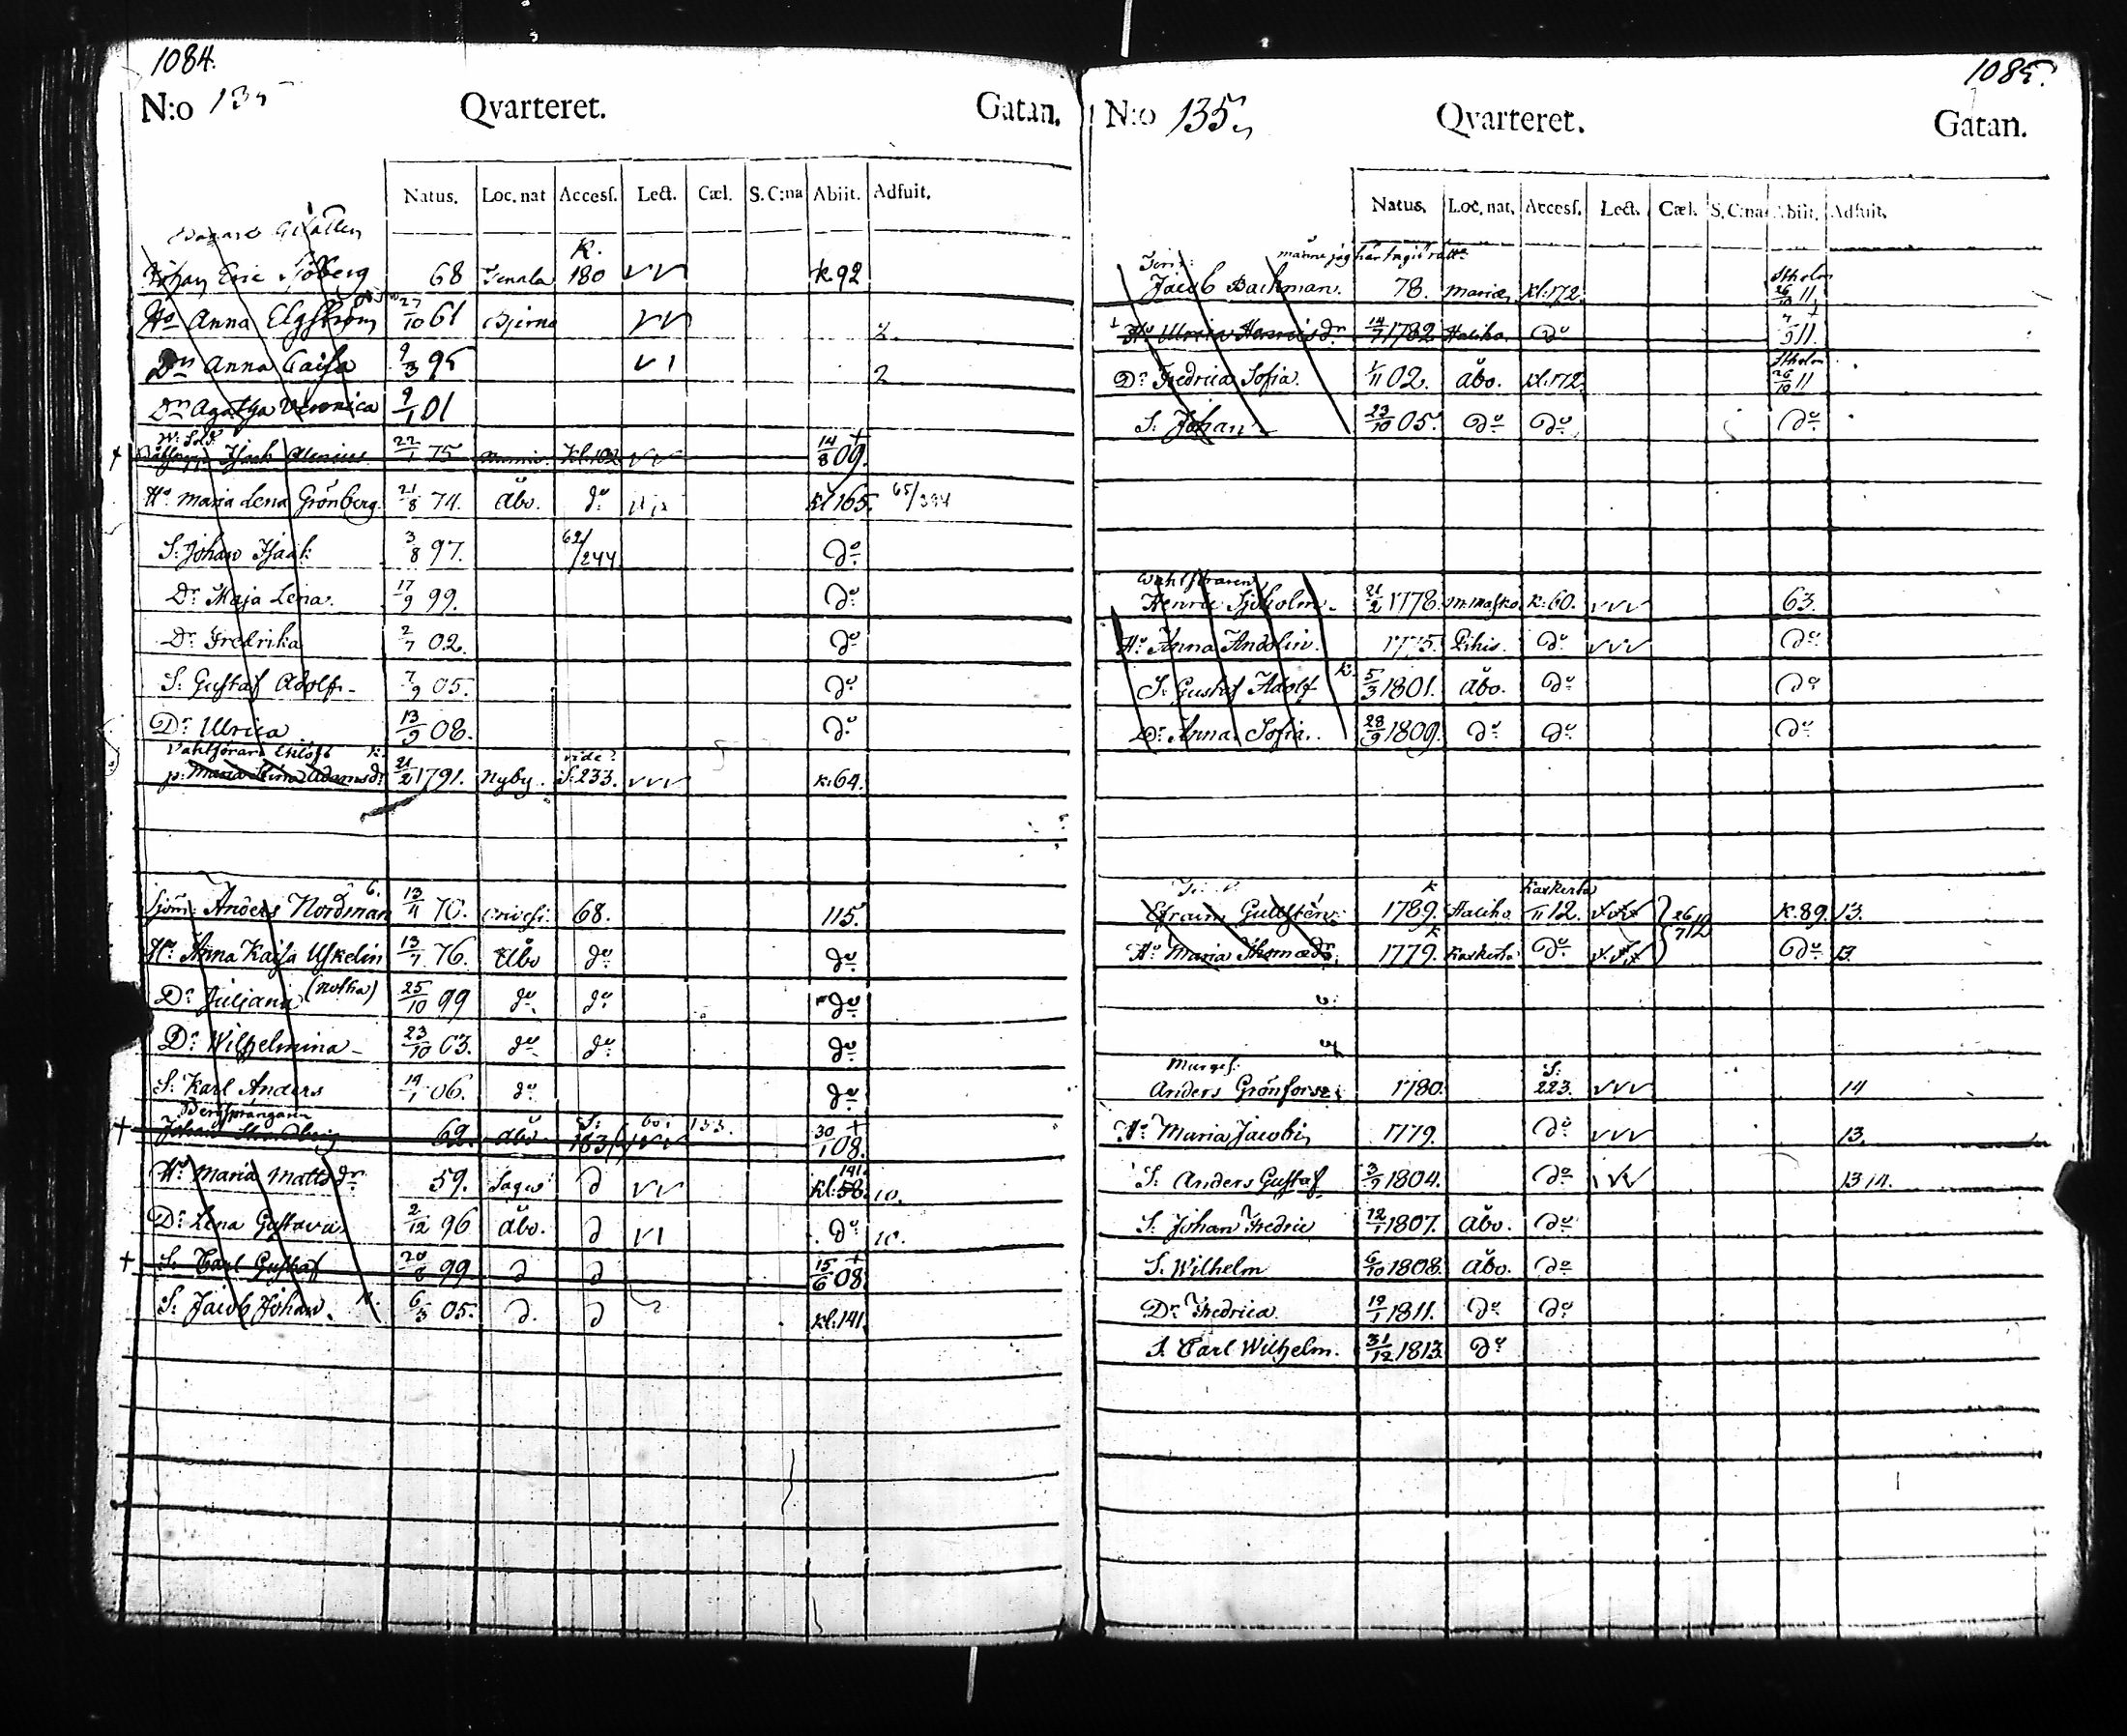 1084.
N:o 135 Qvarteret. Gatan.
Natus. Loc. nat Accesſ. Lect. Cæl. S. C:na Abiit. Adfuit.
K.
Johan Eric Sjöberg 68 Tenala 180 k. 92
Ho Anna Elgström 27/10 61 Bjerno 2.
Dr Anna Caisa 9/3 95 2
Dr Agatha Veronica 9/1 01
W: Sold:
Isaak Alenius 22/1 75 Kl. 182 14/8 09. +
Ho Maria Lena Grönberg. 21/8 74. Åbo. do kl 165. 65/394
S. Johan Isaak 3/8 97. 62/244 do
Dr Maja Lena. 17/9 99. do
Dr Fredrika 2/7 02. do
S. Gustaf Adolf 7/9 05. do
Dr Ulrica 13/9 08. do
vide
p. Maria Stina Adamsdr 21/2 1791. Nyby. S: 233. k: 64.
Sjöm: Anders Nordman 6. 13/11 70. 68. 115.
Ho Anna Kaisa Uskelin 13/7 76. Åbo do do
Dr Juliana (notha) 25/10 99 do do do
Dr Wilhelmina 23/10 03. do do do
S. Karl Anders 19/1 06. do do
Bergsprängaren
Johan Strandberg 62. Åbo S: 183 133. 30/1 08. +
Ho Maria Mattsdr 59. Sagu d kl: 58. 141. 10.
Dr Lena Gustava 2/12 96 Åbo. d do 10.
S. Carl Gustaf 20/8 99 d d 15/6 08 +
S. Jacob Johan. k. 6/3 05. d. d kl. 141.
1085.
N:o 135. Qvarteret. Gatan.
Natus. Loc. nat. Accesſ. Lect. Cæl. S. C:na Abiit. Adfuit.
månne jag här
Jacob Backman. 78. Mariæ Kl: 172. Stholm 26/10 11
Ho Ulrica Henricsdr 14/7 1782 Haliko do 11.
Dr Fredrica Sofia. 1/11 02. Åbo. Kl: 172. Stholm 26/10 11
S. Johan 23/10 05. do do do
Wahlföraren
Henric Sjöholm. 21/2 1778. M: Masko k: 60. 63.
Ho Anna Andelin. 1775. Pikis. do do
S. Gustaf Adolf k. 5/3 1801. Åbo. do do
Dr Anna Sofia. 28/9 1809. do do do
k Kaskerta
Efraim Gullstén 1789. Haliko 11 12. 26/7 12 k. 89. 13.
Ho Maria Thomædr 1779. k Kaskerta do do 13.
Murges:
Anders Grönfors 1780. S: 223. 14
Ho Maria Jacobi 1779. do 13.
S. Anders Gustaf 3/9 1804. do 13 14.
S. Johan Fredric 12/1 1807. Åbo. do
S. Wilhelm 6/10 1808. Åbo. do
Dr Fredrica 19/1 1811. do do
S. Carl Wilhelm. 31/12 1813. do